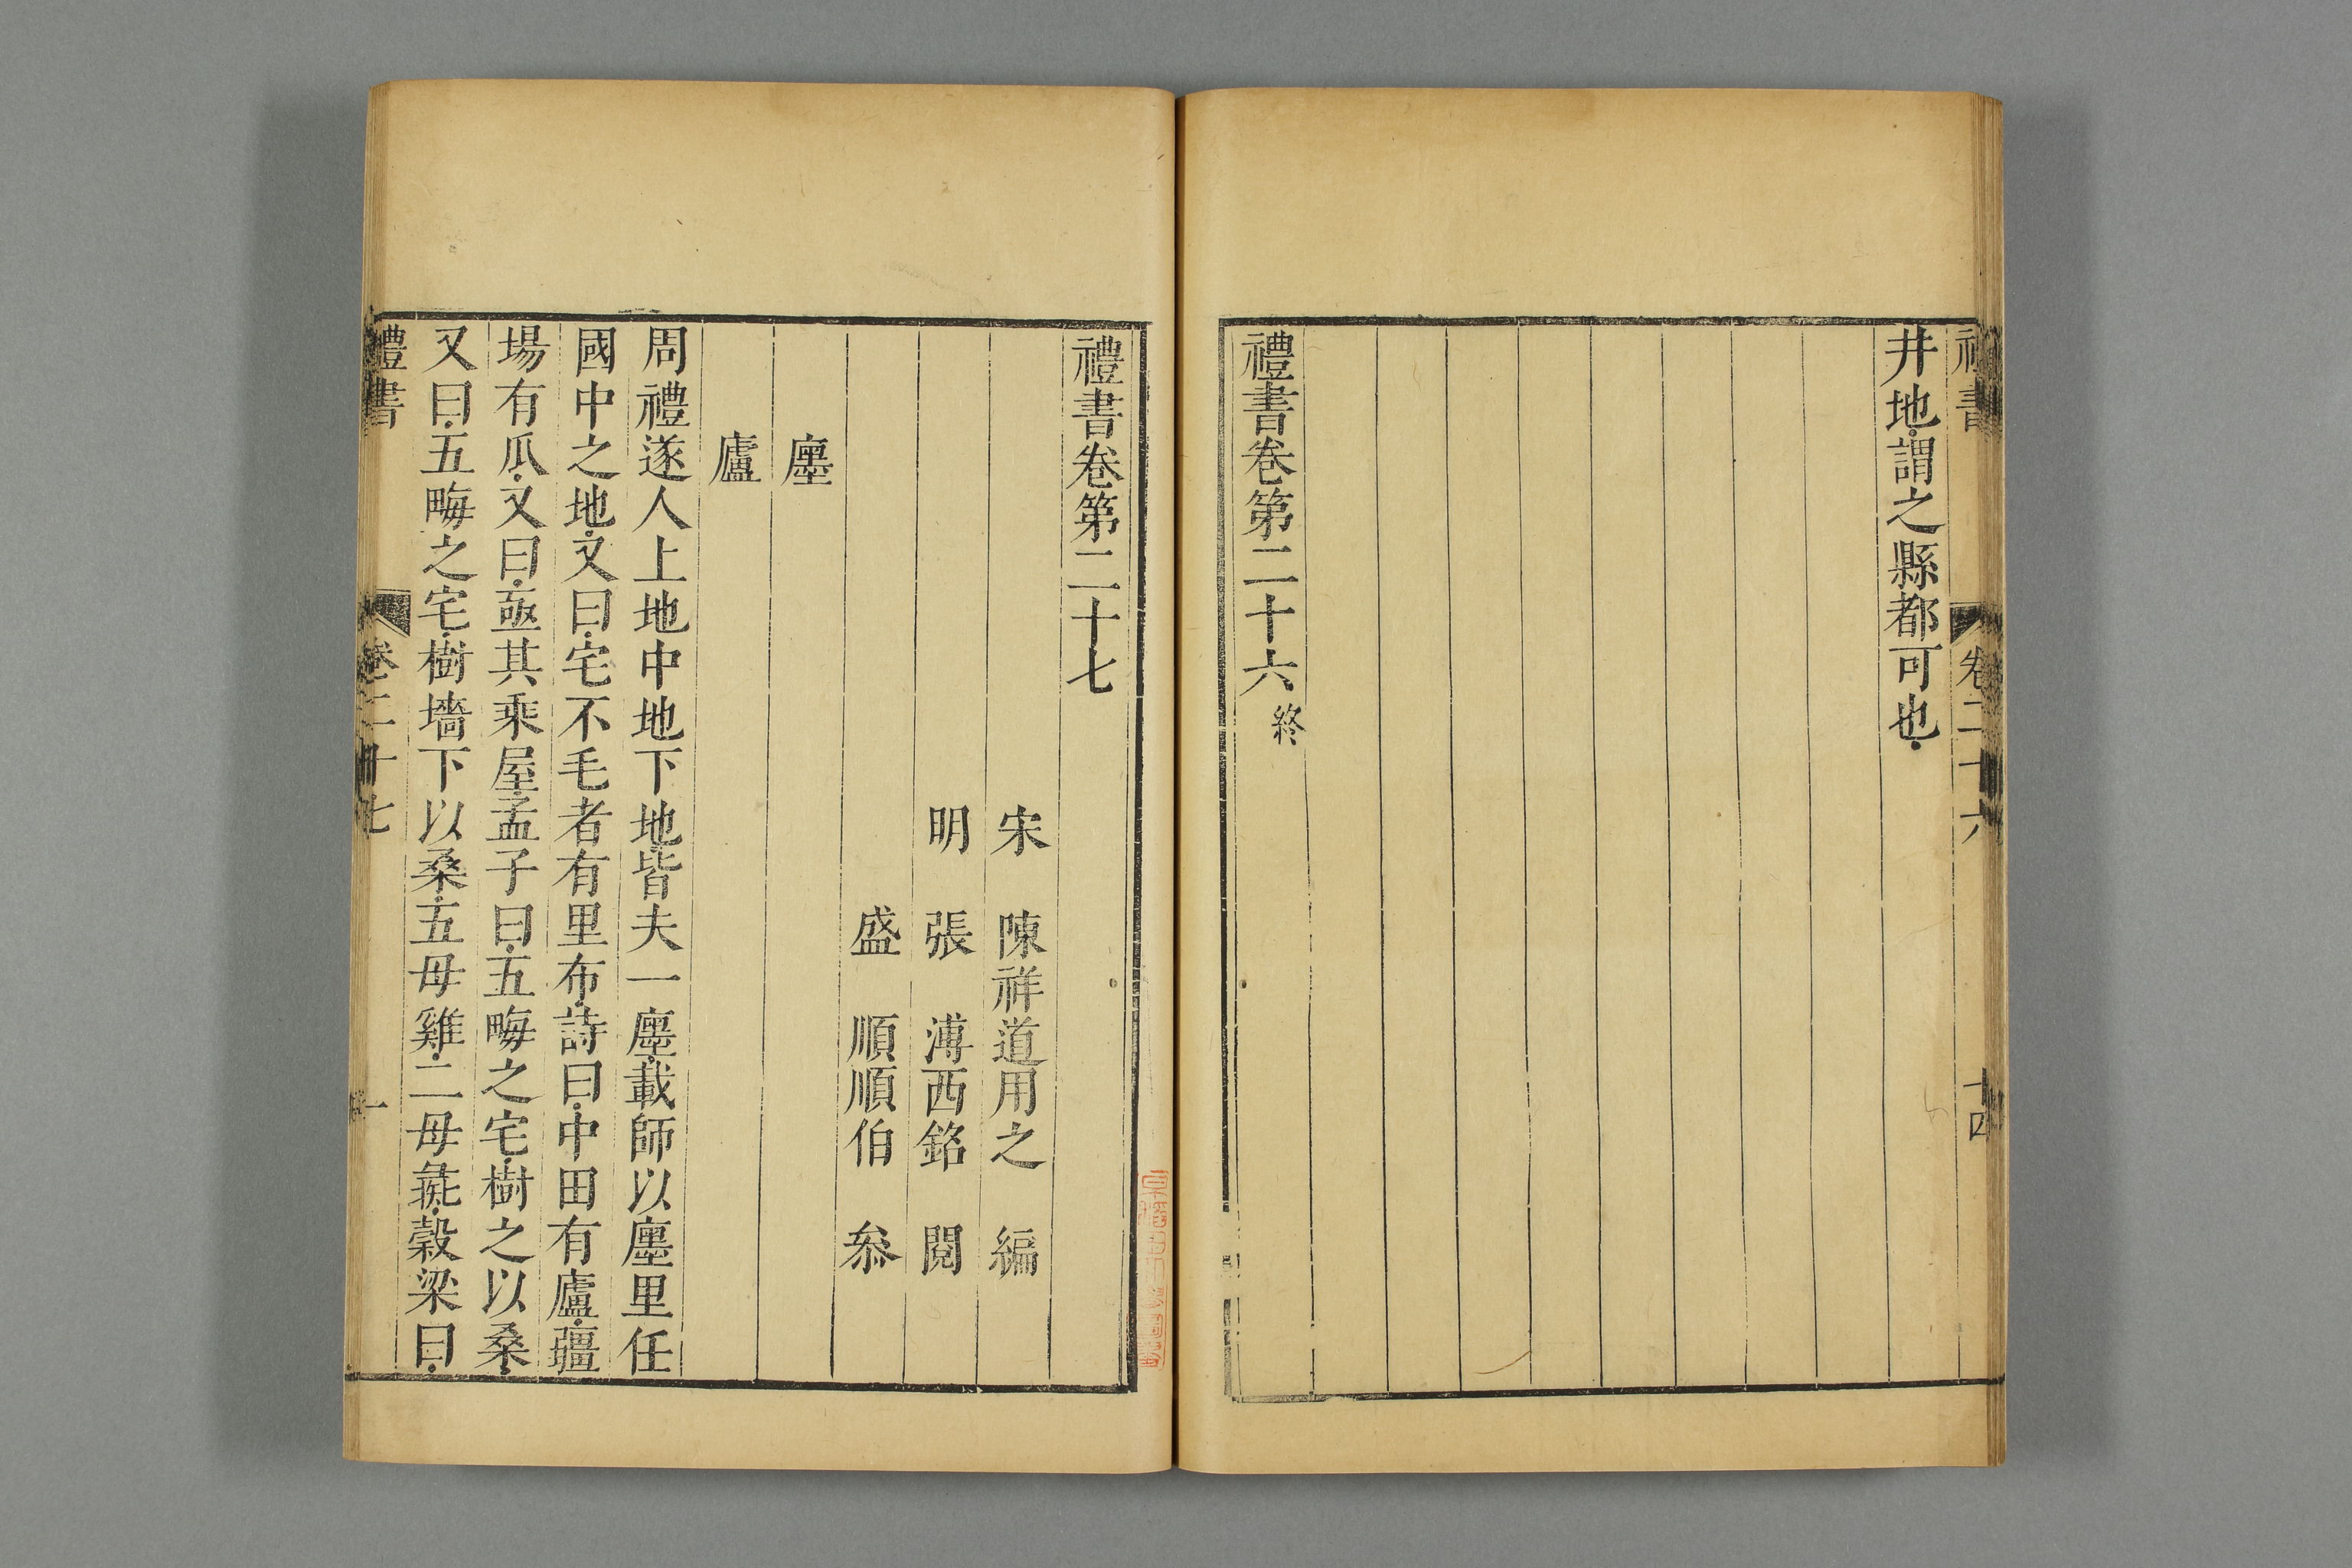 禮書 卷二十六 十四
井地謂之縣都可也
禮書卷第二十六終
禮書卷第二十七
宋 陳祥道用之 編
明 張 溥西銘 閱
盛 順順伯 叅
廛
廬
周禮遂人上地中地下地皆夫一廛載師以廛里任
國中之地又曰宅不毛者有里布詩曰中田有廬疆
場有瓜又曰亟其乘屋孟子曰五畮之宅樹之以桑
又曰五畮之宅樹墻下以桑五母雞二母彘穀梁曰
禮書 卷二十七 一